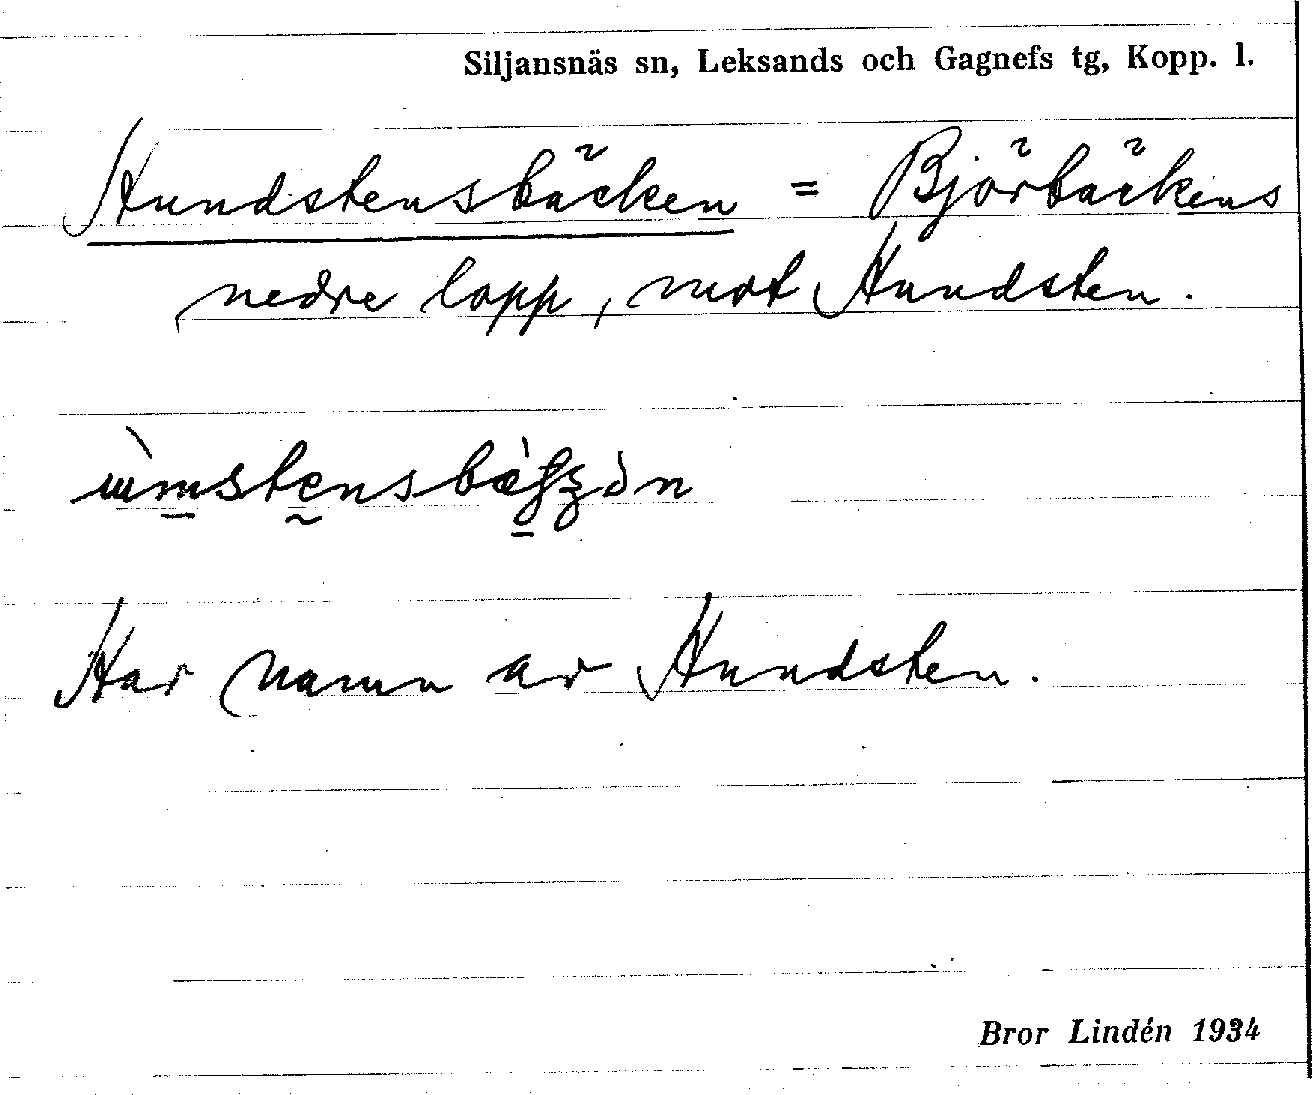 Siljansnäs sn, Leksands och Gagnefs tg, Kopp. l.
Hundstensbäcken = Björbäckens
nedre lopp, mot Hundsten.
Har namn av Hundsten.
Bror Lindén 1934